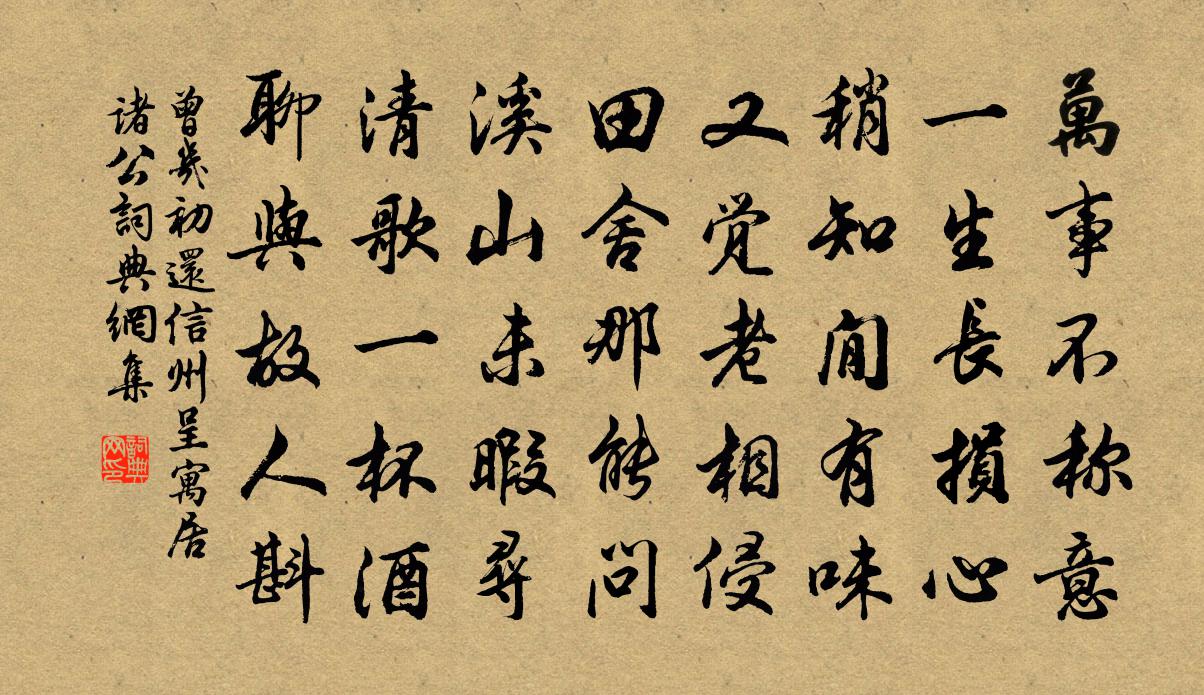 萬事不称意
一生長損心
稍知閒有味
又觉老相侵
田舍那能问
溪山未暇尋
清歌一杯酒
聊與故人斟
曾幾初還信州呈寓居
诸公詞典網集
詞典网印